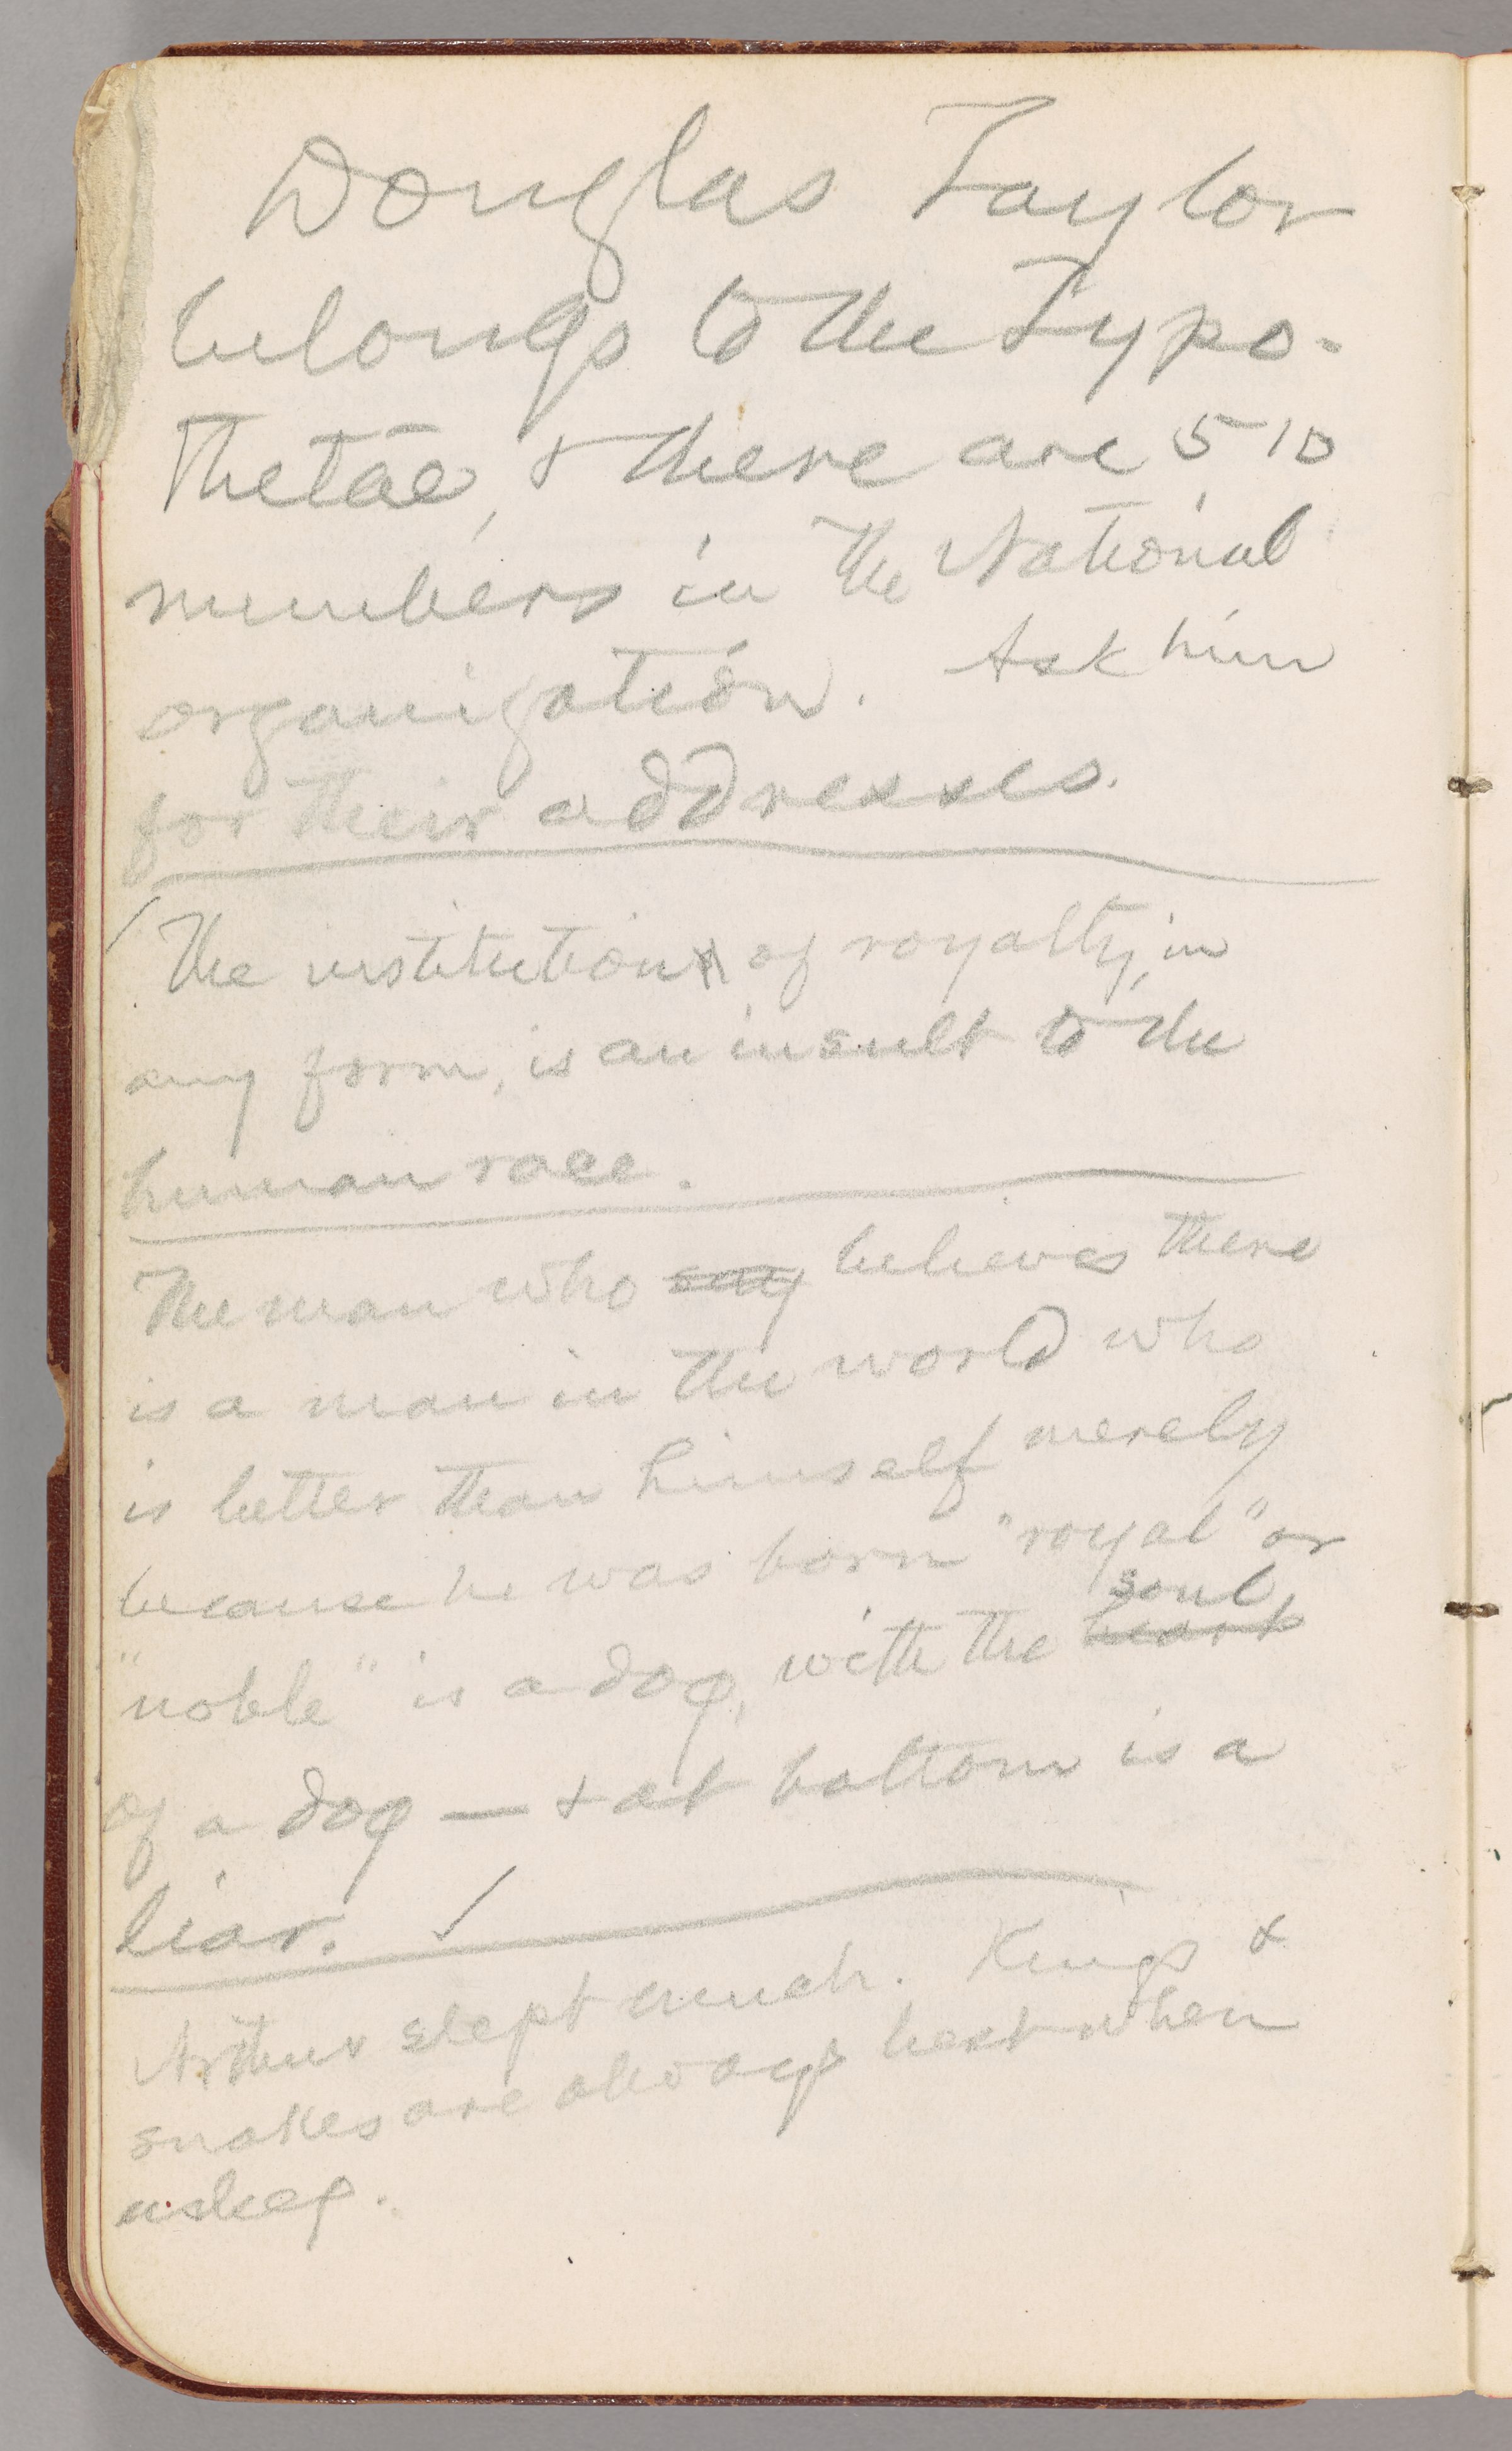 Douglas Taylor
belongs to the Typo-
thetae, & there are 510
members in the National
organization. Ask him
for their addresses.
The institution of royalty, in
any form, is an insult to the
human race.
The man who say believes there
is a man in the world who
is better than himself merely
because he was born "royal" or
soul
"noble" is a dog, with the heart
of a dog — & at bottom is a
liar.
Arthur slept much. Kings &
snakes are always best when
asleep.